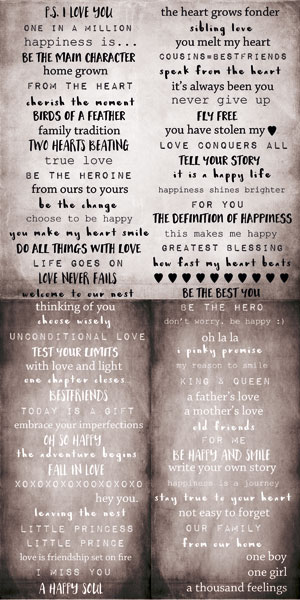 P.S. I LOVE YOU
ONE IN A MILLION
happiness is...
BE THE MAIN CHARACTER
home grown
FROM THE HEART
cherish the moment
BIRDS OF A FEATHER
family tradition
TWO HEARTS BEATING
true love
BE THE HEROINE
from ours to yours
be the change
choose to be happy
you make my heart smile
DO ALL THINGS WITH LOVE
LIFE GOES ON
LOVE NEVER FAILS
welcome to our nest
the heart grows fonder
sibling love
you melt my heart
COUSINS=BESTFRIENDS
speak from the heart
it's always been you
never give up
FLY FREE
you have stolen my ♥
LOVE CONQUERS ALL
TELL YOUR STORY
it is a happy life
happiness shines brighter
FOR YOU
THE DEFINITION OF HAPPINESS
this makes me happy
GREATEST BLESSING
how fast my heart beats
♥♥♥♥♥♥♥♥♥♥♥
BE THE BEST YOU
thinking of you
choose wisely
UNCONDITIONAL LOVE
TEST YOUR LIMITS
with love and light
one chapter closes
BESTFRIENDS
TODAY IS A GIFT
embrace your imperfections
OH SO HAPPY
the adventure begins
FALL IN LOVE
XOXOXOXOXOOXOXOXO
hey you.
leaving the nest
LITTLE PRINCESS
LITTLE PRINCE
love is friendship set on fire
I MISS YOU
A HAPPY SOUL
BE THE HERO
don't worry, be happy :)
oh la la
i pinky promise
my reason to smile
KING & QUEEN
a father's love
a mother's love
old friends
FOR ME
BE HAPPY AND SMILE
write your own story
happiness is a journey
stay true to your heart
not easy to forget
OUR FAMILY
from our home
one boy
one girl
a thousand feelings